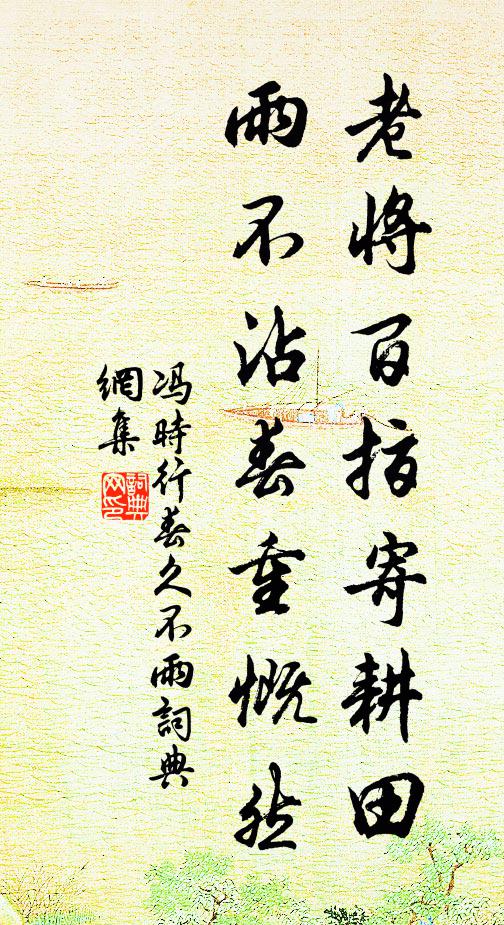 老將百指寄耕田
雨不沾春重慨然
冯時行春久不雨詞典
網集
詞典
网印